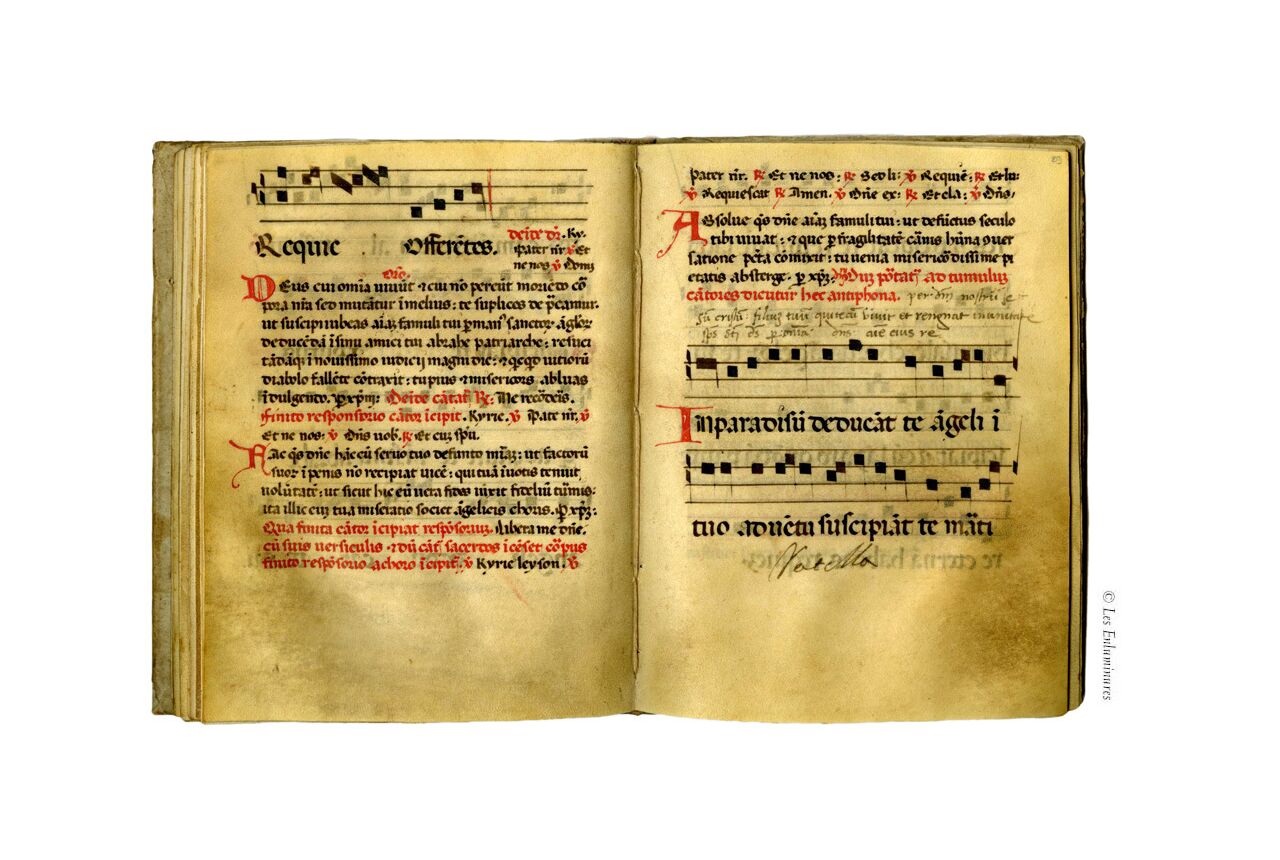 Requie Offerētes. deīde dr̄. Ky.
Pater nr̄ ꝟ Et
ne nos ꝟ Domi
orō.
Deus cui om̄ia uiuūt ⁊ cui nō pereūt moriēdo cor
pora nr̄a sed mutātur ī melius: te suplices dep̄camur.
ut suscipi iubeas aīaȝ famuli tui ꝑ manꝰ sanctoꝝ āgloꝝ
deducēdā ī sinu amici tui abrahe patriarche: resuci
tādāqȝ ī nouissimo iudicij magni die: ⁊ qͥcqͥd uitioꝝ
diabolo fallēte cōtraxit: tu pius ⁊ misericors abluas
īdulgendo. ꝑ xp̄m: Deīde cātat̄ ℞: Ne recordeis.
finito responsorio cātor īcipit. Kyrie. ꝟ Pater nr̄. ꝟ
Et ne nos: ꝟ Dn̄s uob. ℞ Et cuȝ sp̄u.
Fac qs̄ dn̄e hāc cū seruo tuo defunto mīaȝ: ut factorū
suoꝝ ī penis nō recipiat uicē: qui tuā ī uotis tenuit
uolūtatē: ut sicut hic eū uera fides iūxit fideliū tūmis:
ita illic euȝ tua miseratio societ āgelicis choris. ꝑ xp̄ȝ:
Qua finita cātor īcipiat respōsoriuȝ. Libera me dn̄e.
cū suis uersiculis ⁊ dū cāt̄ sacerdos īcēset corpus
finito respōsorio a choro īcipit̄. ꝟ Kyrie leyson. ꝟ
Pater nr̄. ℞ Et ne nos: ℞ Sed li: ꝟ Requiē: ℞ Et lu:
ꝟ Requiescat ℞ Amen. ꝟ Dn̄e ex: ℞ Et cla: ꝟ Dn̄s.
Absolue qs̄ dn̄e aīaȝ famuli tui: ut defūctus seculo
tibi uiuat: ⁊ que ꝑ fragilitatē carnis hūana ꝯuer
satione peccata comixit: tu uenia misericōdissime pi
etatis absterge. ꝑ xp̄ȝ: Dū portat̄ ad tumuluȝ
cātores dicūtur hec antiphona. per dm̄ nostrū Je
sū cristū: filiuȝ tuū qui tecū vivit et rengnat in unitate
sp̄s sti ds̄ p om̄ia
In paradisū deducāt te āgeli ī
tuo aduētu suscipiāt te mārti
© Les Enluminures